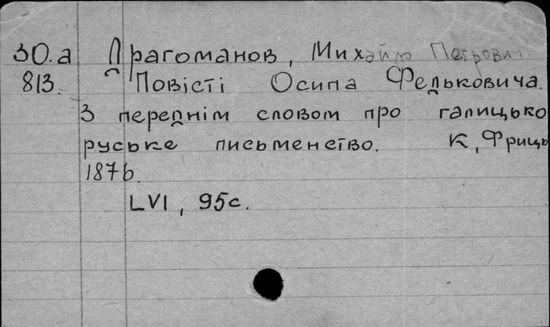 30.а Драгоманов, Михайло Петрович
813. Повісті Осипа Федьковича.
З переднім словом про галицько
руське письменство. К, Фриць
1876.
LVI, 95с.